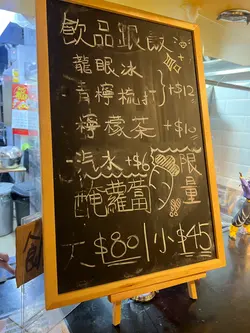 飲品跟飯
+
龍眼冰
青檸梳打 }+$12
檸檬茶 +$10
汽水 +$6
限量
醃蘿蔔
大$80 | 小$45